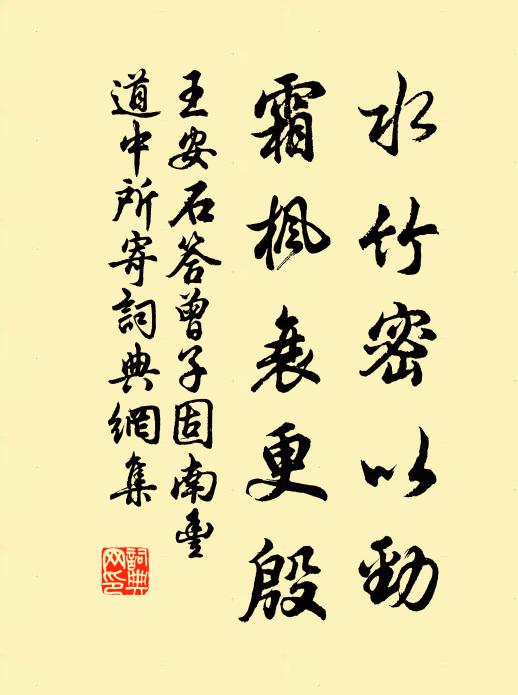 水竹密以勁
霜楓衰更殷
王安石答曾子固南豐
道中所寄詞典網集
詞典網印